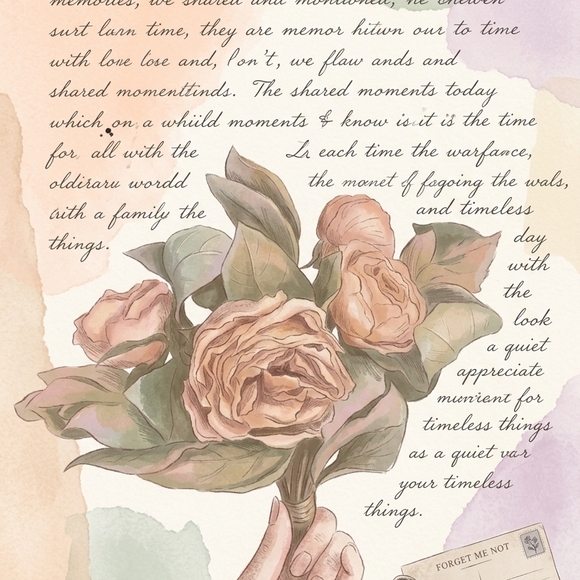 memories, we shared and
surt time, they are memor our to time
with lose and, l on't, we flaw ands and
shared momenttinds. The shared moments today
which on a whiild moments & know is it is the time
for all with the
Lr each time the warfance,
oldiraru wordd
the monet of fogoing the wals,
with a family the
and timeless
things.
day
with
the
look
a quiet
appreciate
for
timeless things
as a quiet var
your timeless
things.
FORGET ME NOT